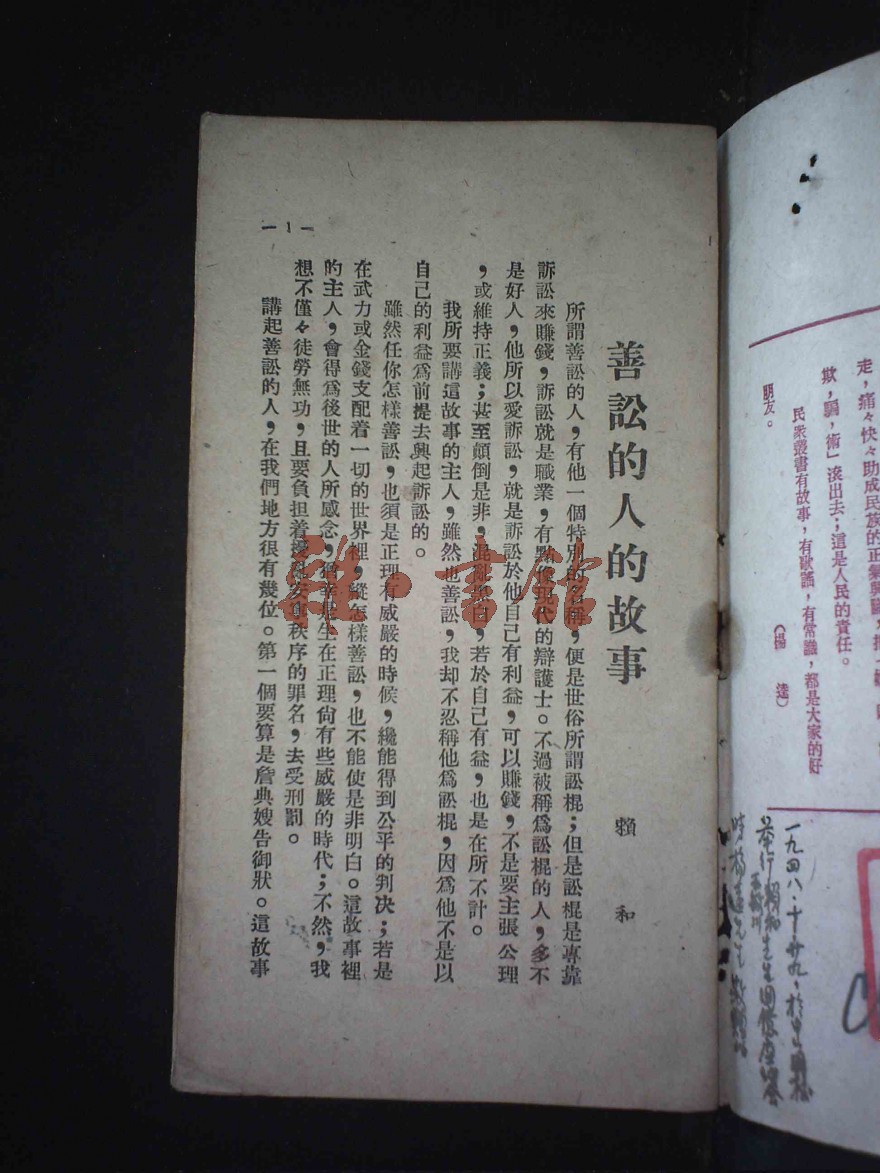 走，痛々快々助成民族的正氣與團
欺，騙，術」滾出去；這是人民的責任。
民衆叢書有故事，有歌謠，有常識，都是大家的好
朋友。
（楊　逵）
一九四八・十・廿九，於
擧行賴和先生回憶座談會
時楊逵先生
善訟的人的故事
賴　和
所謂善訟的人，有他一個特別的名稱，便是世俗所謂訟棍；但是訟棍是專靠
訴訟來賺錢，訴訟就是職業，有點像現代的辯護士。不過被稱爲訟棍的人，多不
是好人，他所以愛訴訟，就是訴訟於他自己有利益，可以賺錢，不是要主張公理
，或維持正義；甚至顛倒是非，混亂黑白，若於自己有益，也是在所不計。
我所要講這故事的主人，雖然也善訟，我却不忍稱他爲訟棍，因爲他不是以
自己的利益爲前提去興起訴訟的。
雖然任你怎樣善訟，也須是正理有威嚴的時候，纔能得到公平的判决；若是
在武力或金錢支配着一切的世界裡，縱怎樣善訟，也不能使是非明白。這故事裡
的主人，會得爲後世的人所感念，猶幸是生在正理尙有些威嚴的時代；不然，我
想不僅々徒勞無功，且要負担着擾亂安寧秩序的罪名，去受刑罰。
講起善訟的人，在我們地方很有幾位。第一個要算是詹典嫂告御狀。這故事
— 1 —
雅・書館